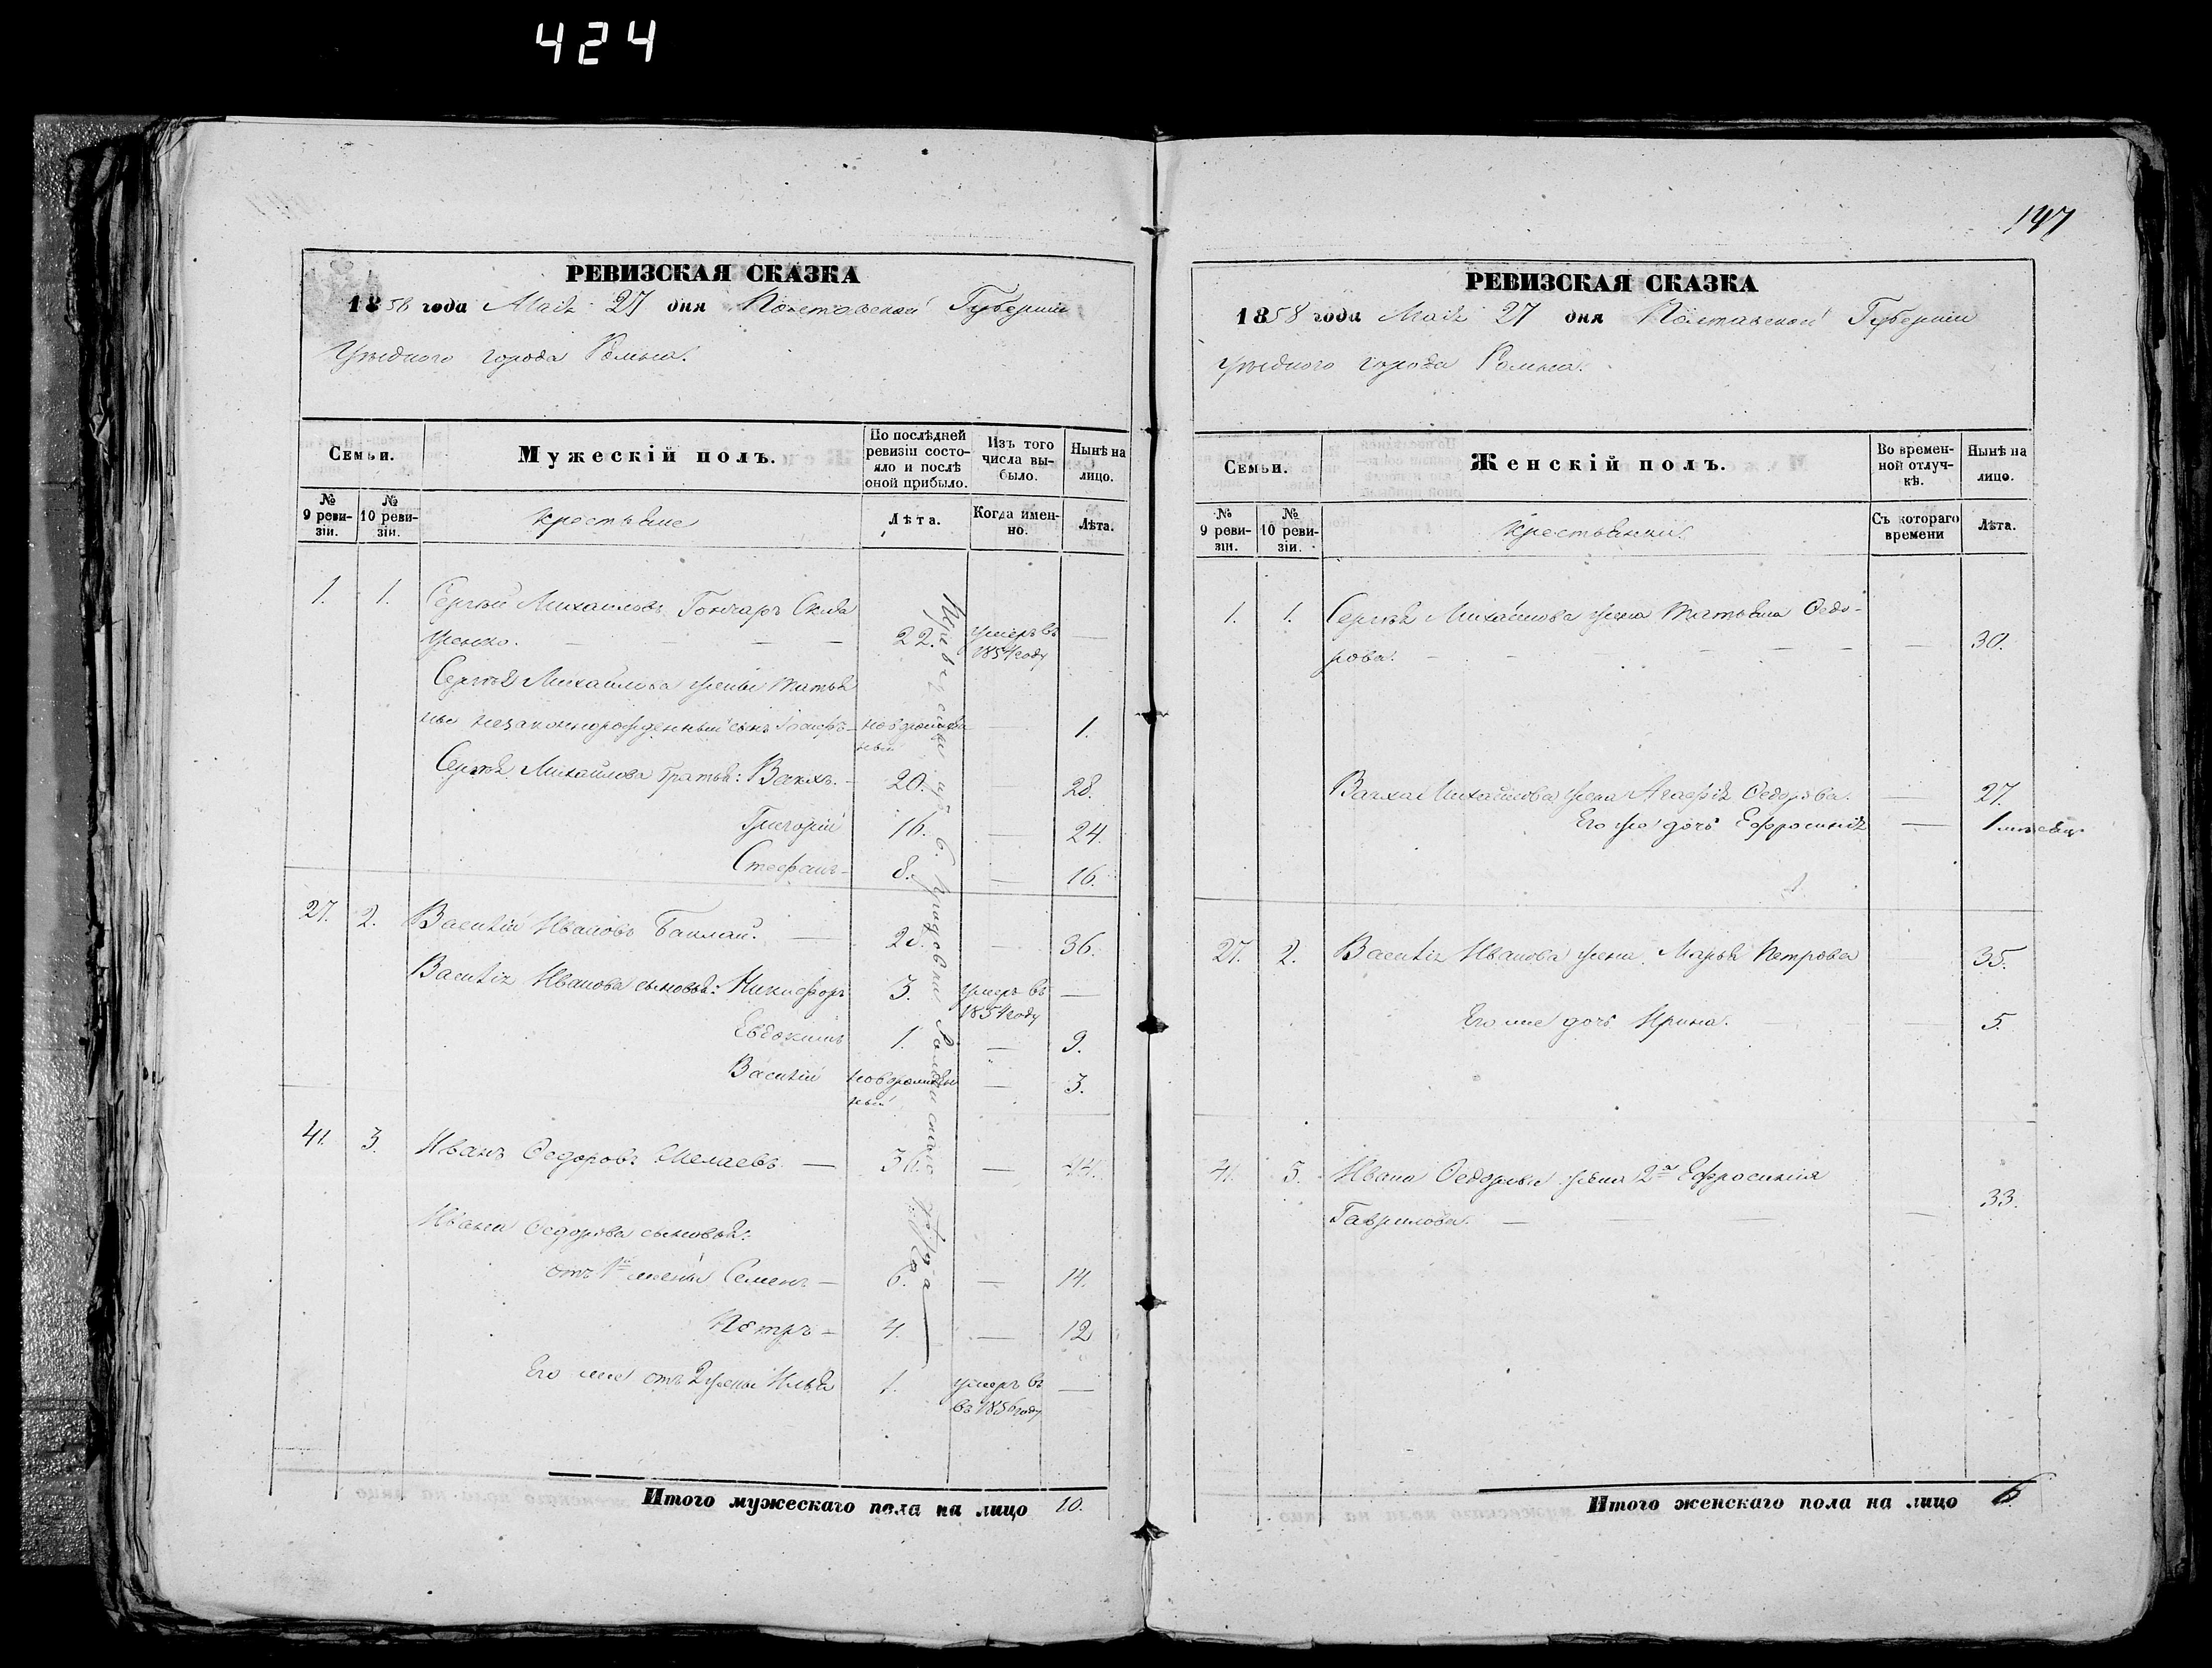 424
РЕВИЗСКАЯ СКАЗКА
1858 года Маія 27 дня Полтавской Губерніи
Уѣзднаго города Ромна.
Семьи.
Мужескій полъ.
По послѣдней ревизіи состояло и послѣ оной прибыло.
Изъ того числа выбыло.
Нынѣ на лицо.
№ 9 ревизіи.
№ 10 ревизіи.
Крестьяне
Лѣта.
Когда именно.
Лѣта.
1. 1. Сергѣй Михайловъ Гончаръ
22. умеръ въ 1854 году —
Сергѣя Михайлова жены Татья
ны незаконнорожденный сынъ новорожденный — 1.
Сергѣя Михайлова братья: Вакхъ. 20. — 28.
Григорій 16. — 24.
Стефанъ 8. — 16.
27. 2. Василій Ивановъ Баклай. — 36.
Василія Иванова сыновья: Никифоръ 3. умеръ въ 1854 году —
Евдокимъ 1. — 9.
Василій новорожденный — 3.
41. 3. Иванъ Федоровъ — 36. — 44.
Ивана Федорова сыновья:
отъ 1й жены Семенъ — 6. — 14.
Петръ — 4. — 12
Его же отъ 2 жены Илья 1. умеръ въ
въ 1856 году —
Итого мужескаго пола на лицо 10.
147
РЕВИЗСКАЯ СКАЗКА
1858 года Маія 27 дня Полтавской Губерніи
Уѣзднаго города Ромна.
Семьи.
Женскій полъ.
Во временной отлучкѣ.
Нынѣ на лицо.
№ 9 ревизіи.
№ 10 ревизіи.
Крестьянки.
Съ котораго времени
Лѣта.
1. 1. Сергѣя Михайлова жена Татьяна Федо-
рова. — — 30.
Вакха Михайлова жена Агафія Федорова. — 27.
Его же дочь Ефросинія — 1 мѣсяцъ
27. 2. Василія Иванова жена Марья Петрова 35.
Его же дочь Ирина. 5.
41. 3. Ивана Федорова жена 2я Ефросинія
Гаврилова. — — 33.
Итого женскаго пола на лицо 6